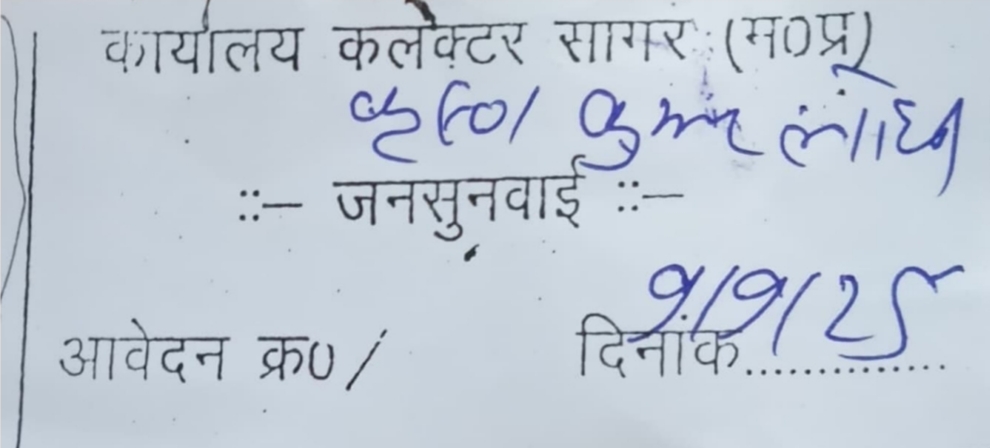 कार्यालय कलेक्टर सागर (म0प्र)
कृष्ण कुमार
::- जनसुनवाई ::-
9/9/25
आवेदन क्र0/ दिनांक..............